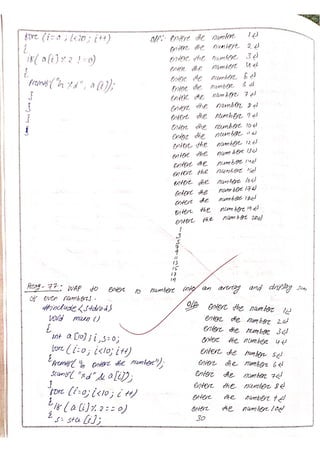 for (i=0; i<20; i++)
{
if (a[i] % 2 != 0)
{
printf("\n %d", a[i]);
}
}
}
O/P: Enter the number 1↵
Enter the number 2↵
Enter the number 3↵
Enter the number 4↵
Enter the number 5↵
Enter the number 6↵
Enter the number 7↵
Enter the number 8↵
Enter the number 9↵
Enter the number 10↵
Enter the number 11↵
Enter the number 12↵
Enter the number 13↵
Enter the number 14↵
Enter the number 15↵
Enter the number 16↵
Enter the number 17↵
Enter the number 18↵
Enter the number 19↵
Enter the number 20↵
1
3
5
7
9
11
13
15
17
19
Prog-77: WAP to enter 10 numbers into an array and display sum
of even numbers.
#include <stdio.h>
void main ()
{
int a[10], i, s=0;
for (i=0; i<10; i++)
{
printf("\n enter the number");
scanf("%d", &a[i]);
}
for (i=0; i<10; i++)
{
if (a[i] % 2 == 0)
{ s = s+a[i];
O/P Enter the number 1↵
Enter the number 2↵
Enter the number 3↵
Enter the number 4↵
Enter the number 5↵
Enter the number 6↵
Enter the number 7↵
Enter the number 8↵
Enter the number 9↵
Enter the number 10↵
30